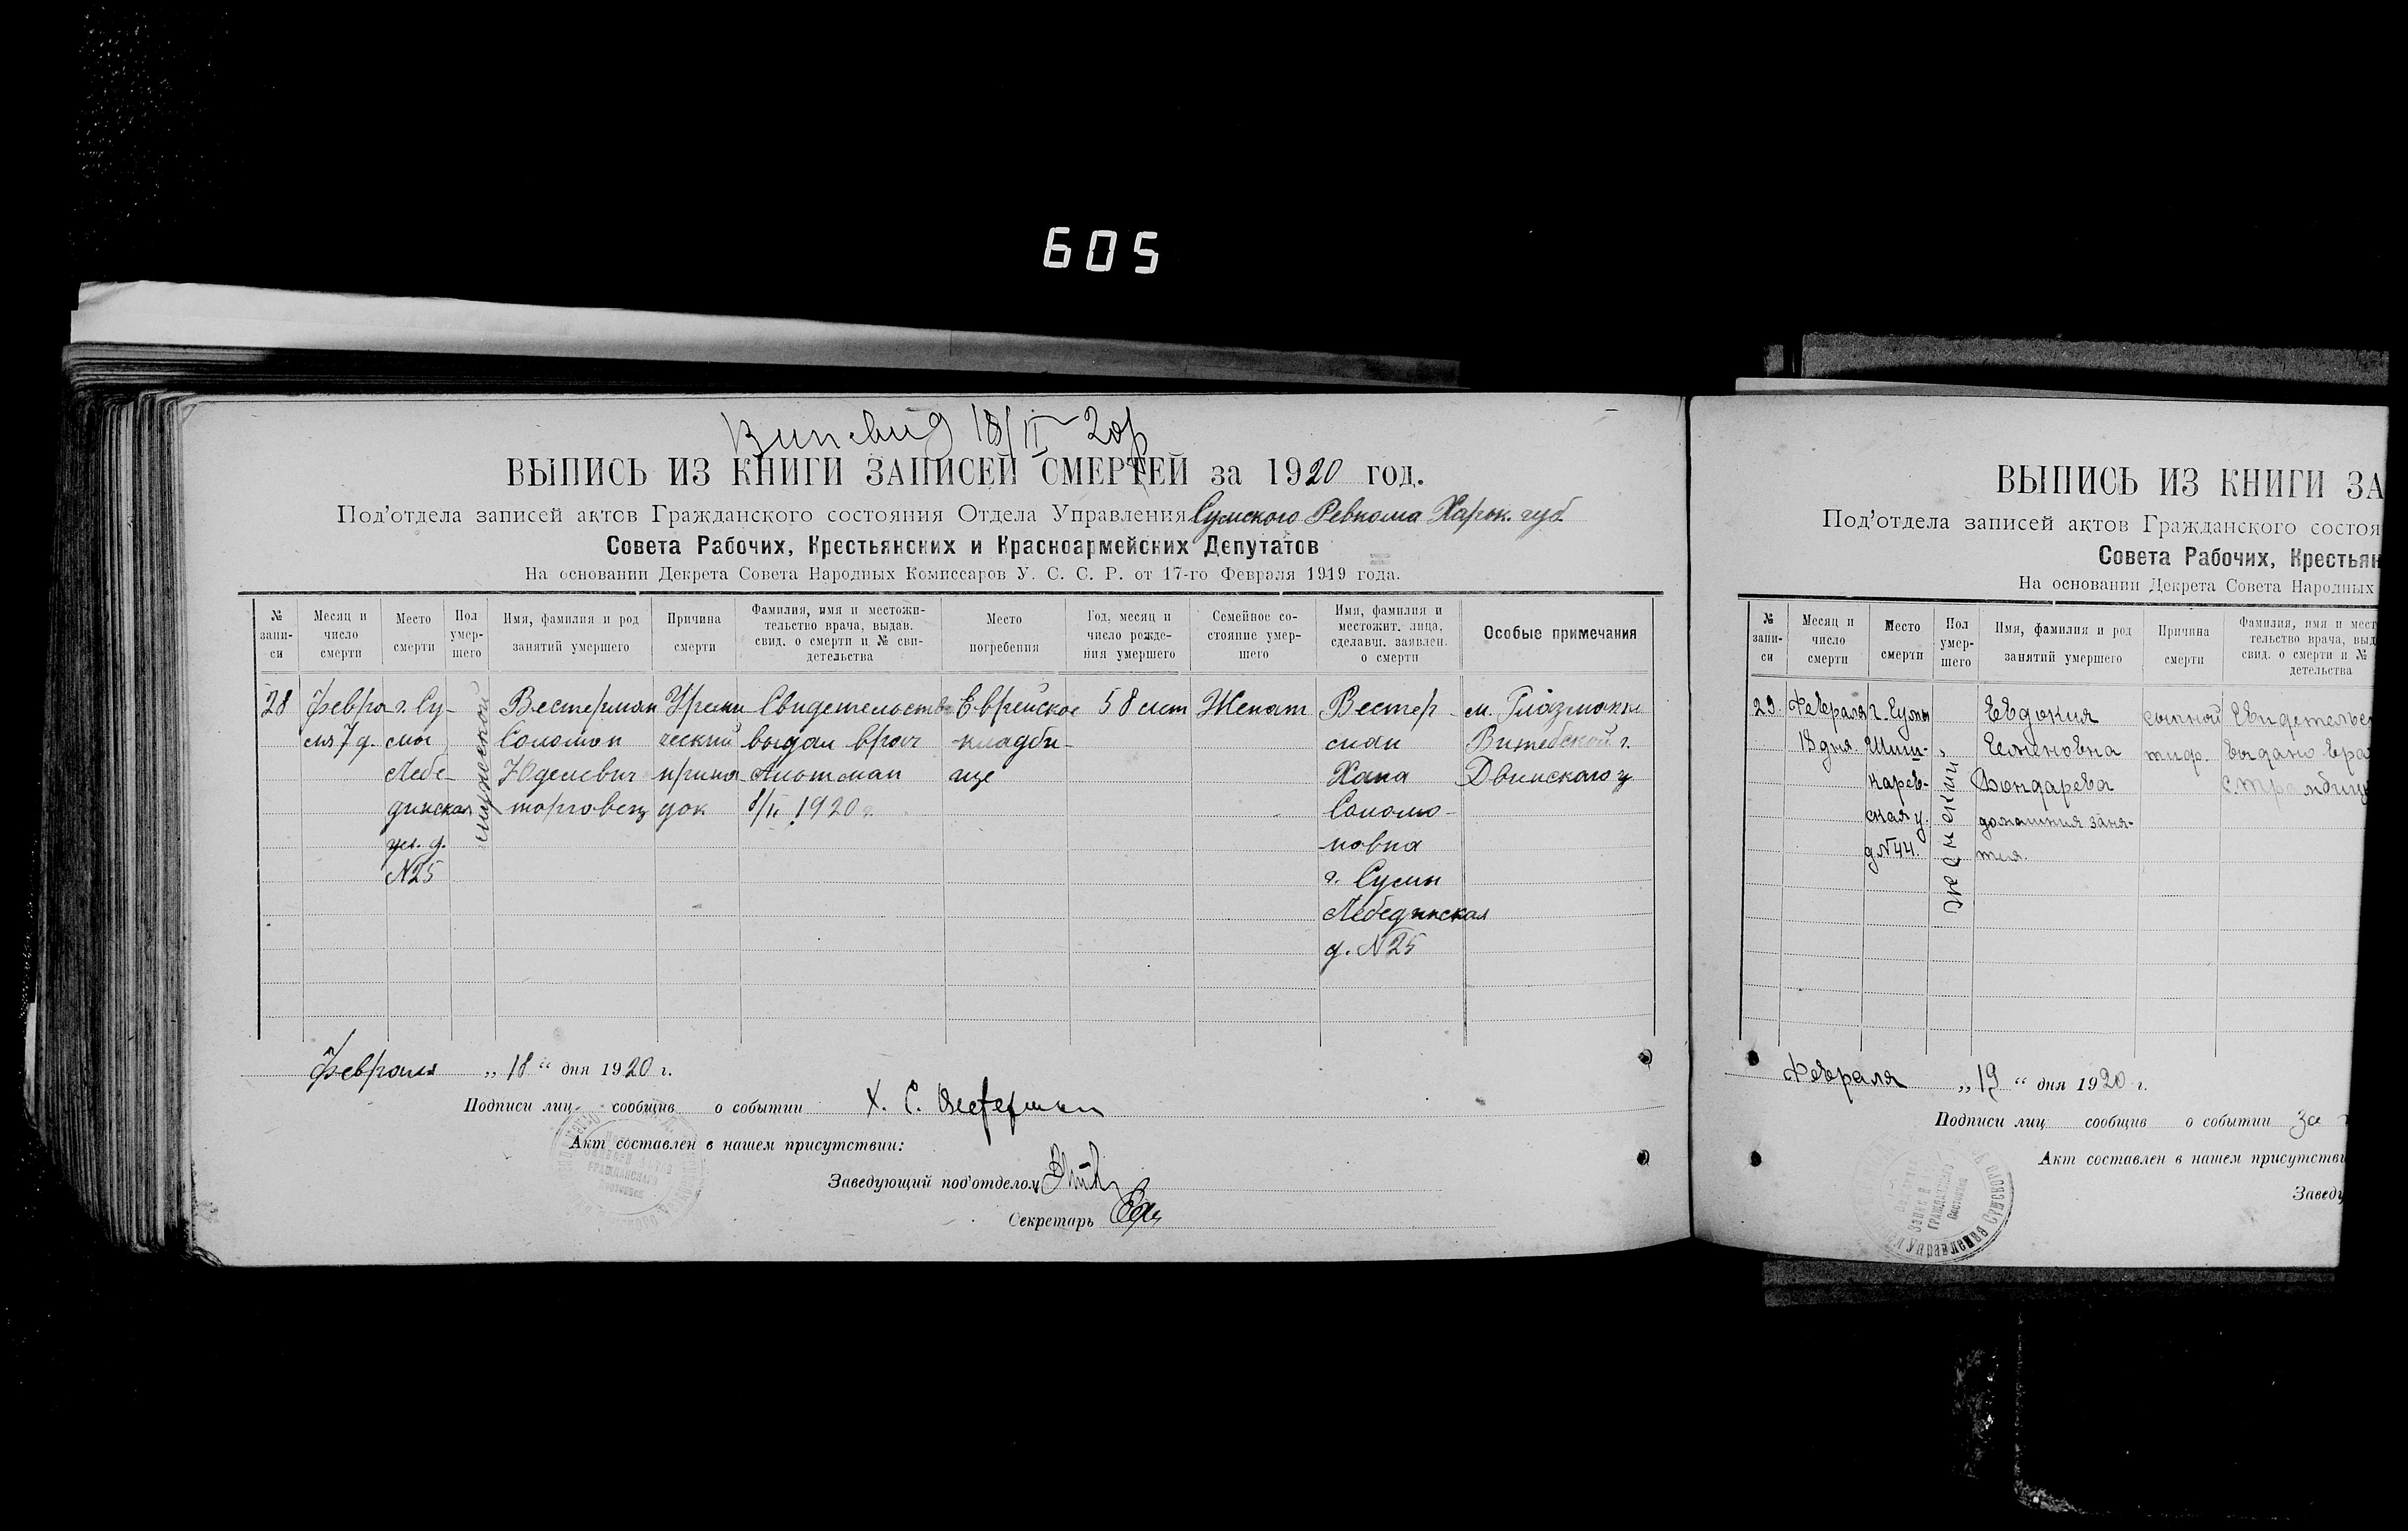 605
18/II 20
ВЫПИСЬ ИЗ КНИГИ ЗАПИСЕЙ СМЕРТЕЙ за 1920 год.
Под'отдела записей актов Гражданского состояния Отдела Управления Сумского Ревкома Харьк. губ.
Совета Рабочих, Крестьянских и Красноармейских Депутатов
На основании Декрета Совета Народных Комиссаров У. С. С. Р. от 17-го Февраля 1919 года.
№ запи-си
Месяц и число смерти
Место смерти
Пол умер-шего
Имя, фамилия и род занятий умершего
Причина смерти
Фамилия, имя и местожи-тельство врача, выдав. свид. о смерти и № сви-детельства
Место погребения
Год, месяц и число рожде-ния умершего
Семейное со-стояние умер-шего
Имя, фамилия и местожит. лица, сделавш. заявлен. о смерти
Особые примечания
28
Февра
ля 7 д.
г. Су-
мы
Лебе-
динская
ул. д.
N25
мужской
Вестерман
Соломон
Юделевич
торговец
Уреми
ческий
припа
док
Свидетельство
выдал врач
8/II 1920 г.
Еврейское
кладби-
ще
58 лет
Женат
Вестер
ман
Хана
Соломо-
новна
г. Сумы
Лебединская
д. N25
м. Глазманки
Витебской г.
Двинского у
Февраля „18“ дня 1920 г.
Подписи лиц сообщив о событии Х. С. Вестерман
Акт составлен в нашем присутствии:
Заведующий под'отделом
Секретарь
ВЫПИСЬ ИЗ КНИГИ ЗА
Под'отдела записей актов Гражданского состоя
Совета Рабочих, Крестьян
На основании Декрета Совета Народных
№ запи-си
Месяц и число смерти
Место смерти
Пол умер-шего
Имя, фамилия и род занятий умершего
Причина смерти
Фамилия, имя и мест
тельство врача, выд
свид. о смерти и №
детельства
29.
Февраля
18 дня.
г. Сумы
Шиш-
карев-
ская у.
д. N44.
женский
Евдокия
Семеновна
Бондарева
домашния заня-
тия.
сыпной
тиф.
Свидетельс
выдано вра
Февраля „19“ дня 1920 г.
Подписи лиц сообщив о событии За
Акт составлен в нашем присутстви
Заведу